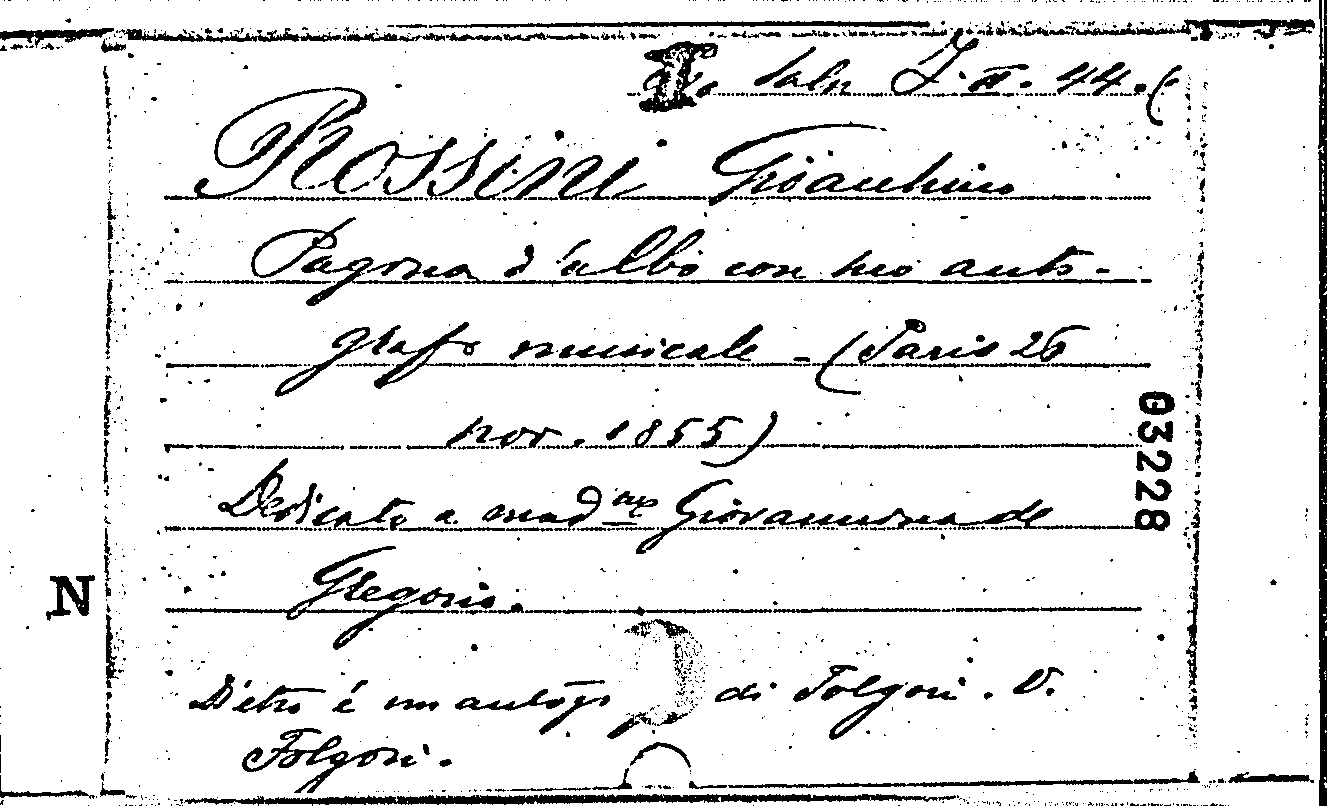 Salv I. II. 44. (
ROSSINI Gioacchino
Pagina d'albo con suo auto-
grafo musicale - (Paris 26
nov. 1855)
03228
Dedicato a mad.me Giovannina de
Gregorio.
N
Dietro è un autogr di Folgori. V.
Folgori.